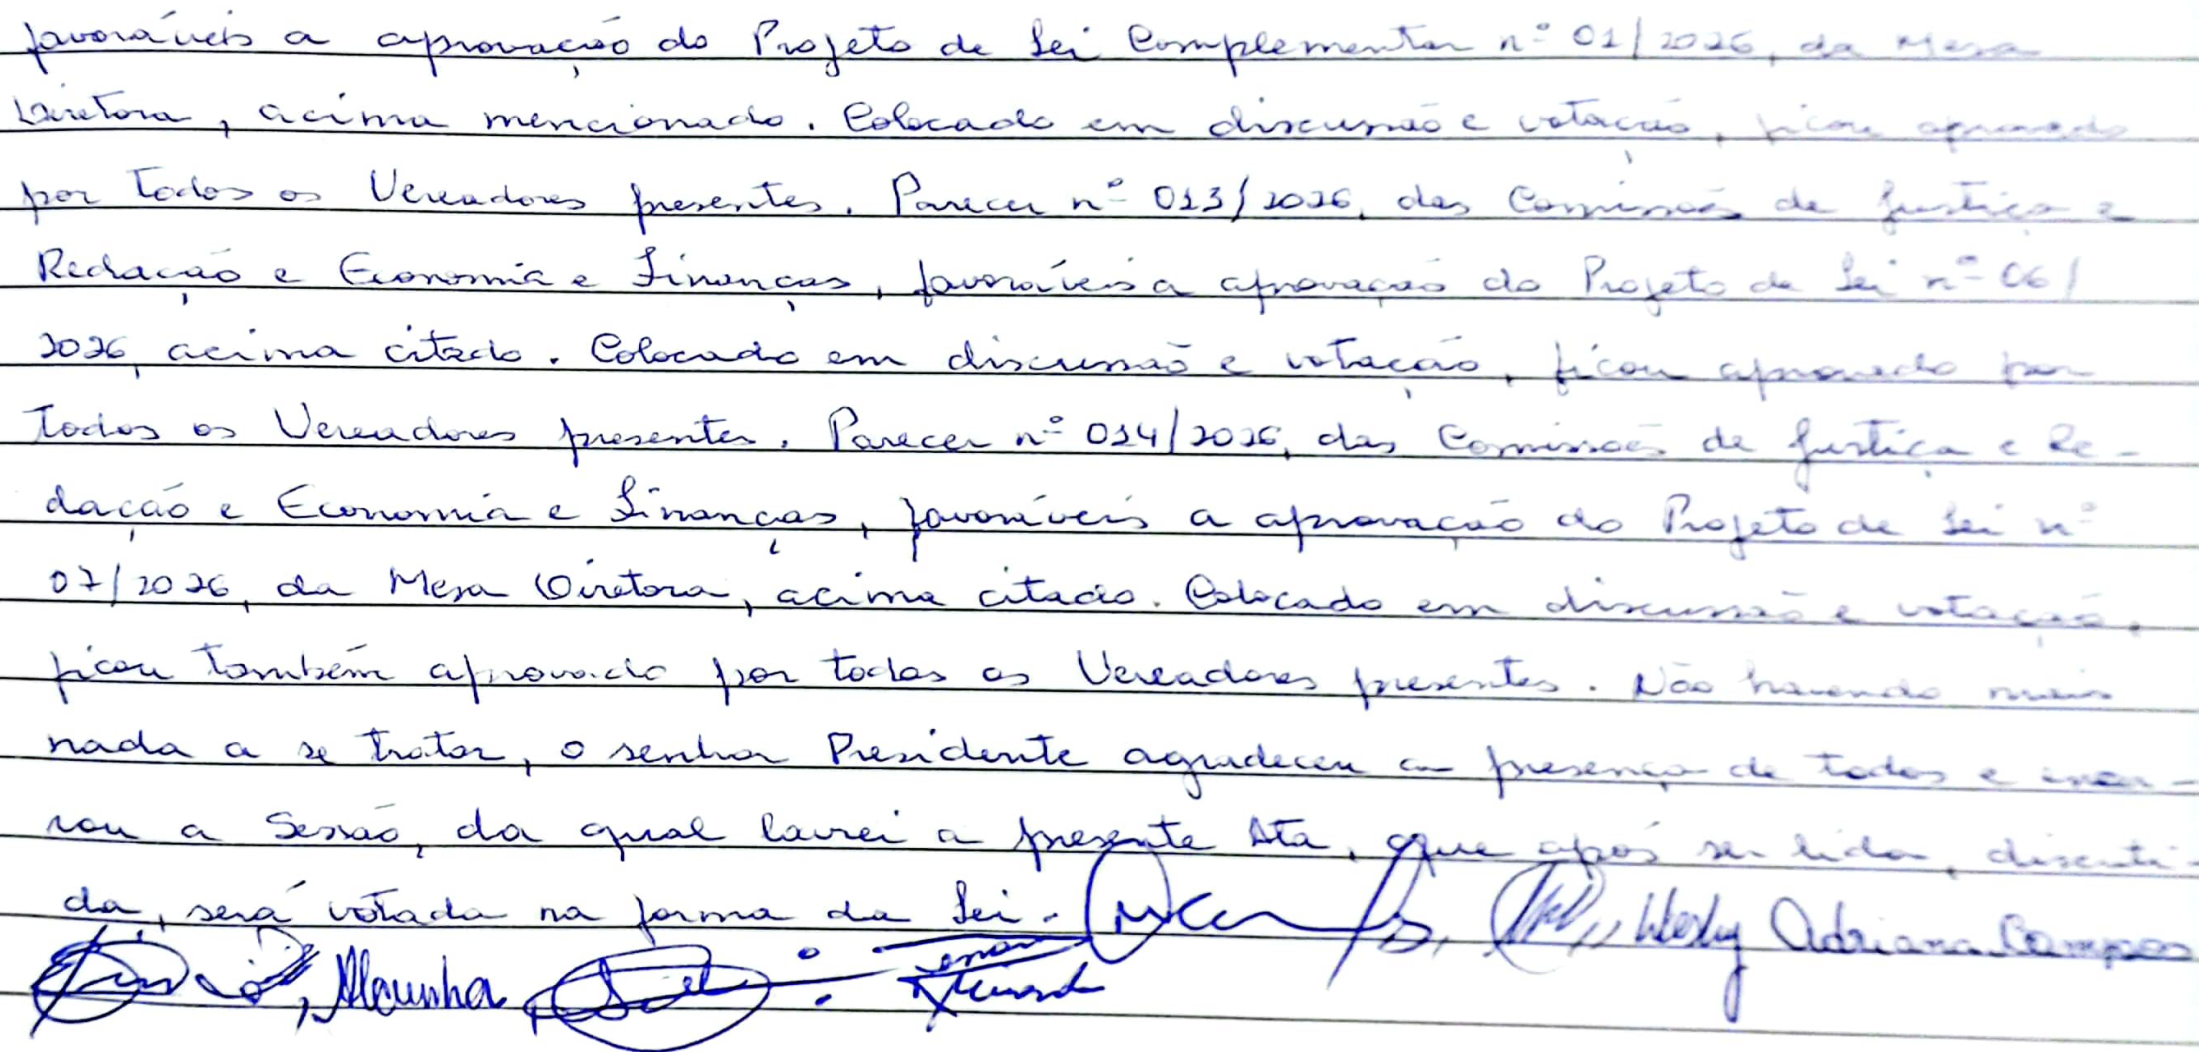 favoráveis a aprovação do Projeto de Lei Complementar nº 01/2026, da Mesa
Diretora, acima mencionado. Colocado em discussão e votação, ficou aprovado
por todos os Vereadores presentes. Parecer nº 013/2026, das Comissões de Justiça e
Redação e Economia e Finanças, favoráveis a aprovação do Projeto de Lei nº 06/
2026, acima citado. Colocado em discussão e votação, ficou aprovado por
todos os Vereadores presentes. Parecer nº 014/2026, das Comissões de Justiça e Re-
dação e Economia e Finanças, favoráveis a aprovação do Projeto de Lei nº
07/2026, da Mesa Diretora, acima citado. Colocado em discussão e votação,
ficou também aprovado por todos os Vereadores presentes. Não havendo mais
nada a se tratar, o senhor Presidente agradeceu a presença de todos e encer-
rou a Sessão, da qual lavrei a presente Ata, que após ser lida, discuti-
da, será votada na forma da Lei. Wesly Adriana Campos